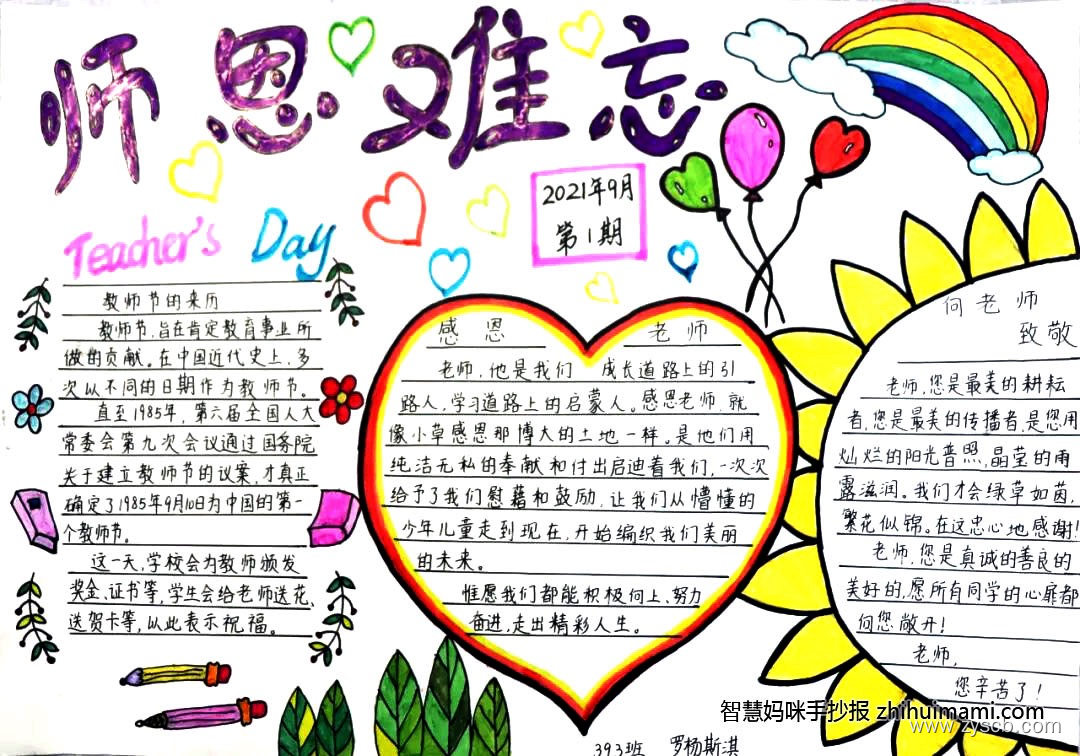 师恩难忘
2021年9月
第1期
Teacher's Day
教师节的来历
教师节,旨在肯定教育事业所
做的贡献。在中国近代史上,多
次从不同的日期作为教师节。
直至1985年,第六届全国人大
常委会第九次会议通过国务院
关于建立教师节的议案,才真正
确定了1985年9月10日为中国的第一
个教师节。
这一天,学校会为教师颁发
奖金、证书等,学生会给老师送花、
送贺卡等,以此表示祝福。
感恩 老师
老师,他是我们 成长道路上的引
路人,学习道路上的启蒙人。感恩老师,就
像小草感恩那博大的土地一样。是他们用
纯洁无私的奉献和付出启迪着我们,一次次
给予了我们慰藉和鼓励,让我们从懵懂的
少年儿童走到现在,开始编织我们美丽
的未来。
惟愿我们都能积极向上、努力
奋进,走出精彩人生。
向老师
致敬
老师,您是最美的耕耘
者,您是最美的传播者,是您用
灿烂的阳光普照,晶莹的雨
露滋润。我们才会绿草如茵,
繁花似锦。在这忠心地感谢!
老师,您是真诚的善良的
美好的,愿所有同学的心扉都
向您敞开!
老师,
您辛苦了!
393班 罗杨斯淇
智慧妈咪手抄报 zhihuimami.com
www.zyscb.com